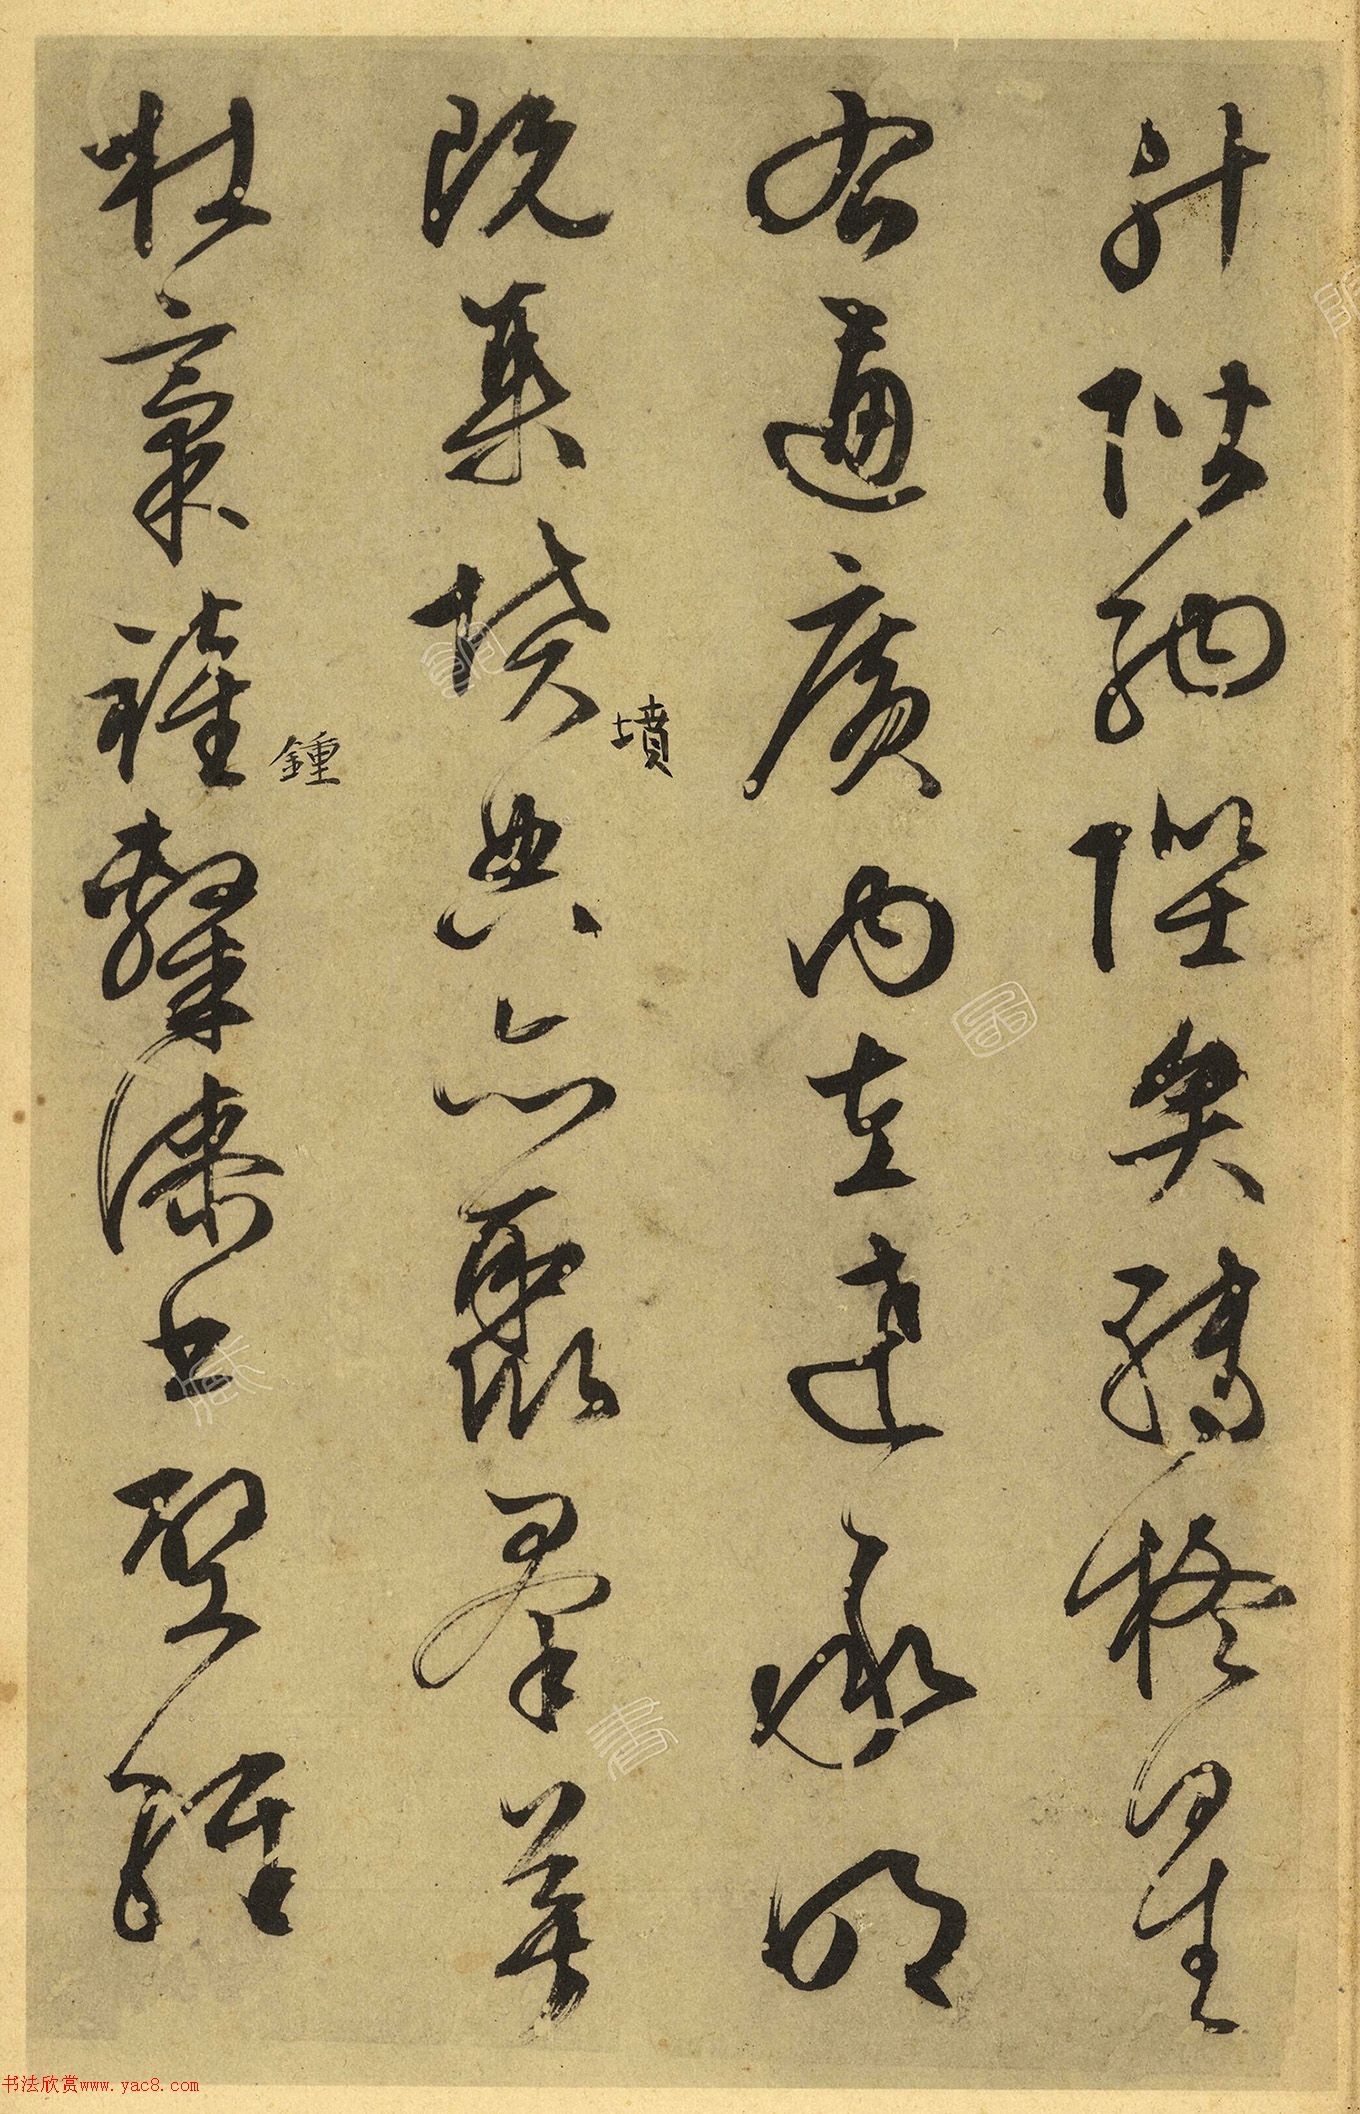 升階納陛弁轉疑星
右通廣內左達承明
既集墳典亦聚羣英
墳
杜稾鍾隸漆書壁經
鍾
书法欣赏www.yac8.com